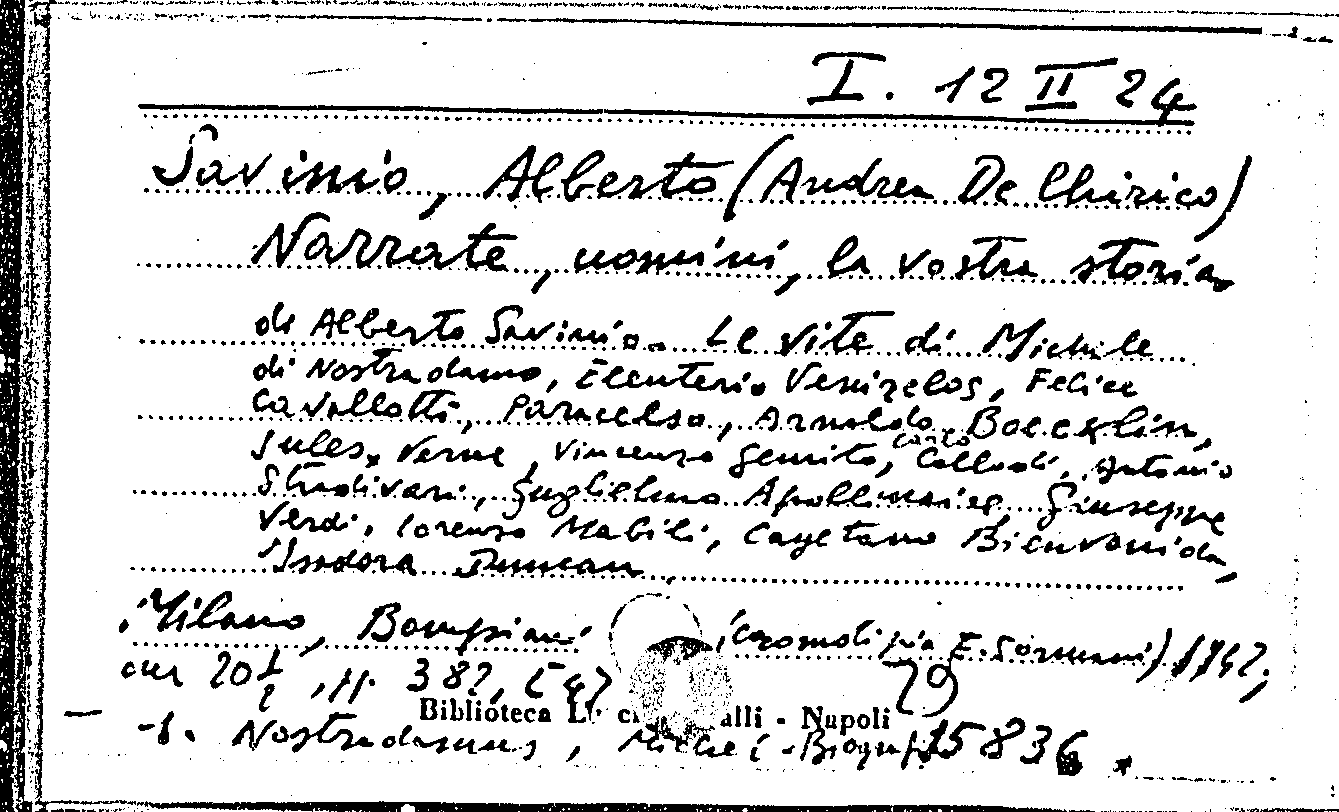 I. 12 II 24
Savinio, Alberto (Andrea De Chirico)
Narrate, uomini, la vostra storia
di Alberto Savinio. Le vite di Michele
di Nostradamo, Eleuterio Venizelos, Felice
Cavallotti, Paracelso, Arnoldo Boecklin,
Jules Verne, Vincenzo Gemito, Carlo Collodi, Antonio
Stradivari, Guglielmo Apollinaire, Giuseppe
Verdi, Lorenzo Mabili, Cayetano Bienvenida,
Isadora Duncan.
Milano, Bompiani (Cromotipia E. Sormani) 1942,
cm 20½, pp. 382, [4]
Biblioteca Lu alli - Napoli
-1. Nostradamus, Michel - Biograf 15836